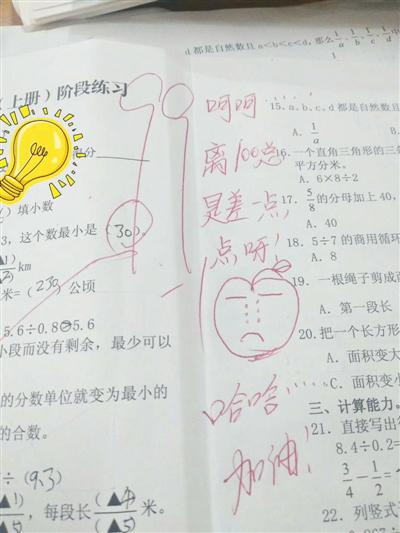 d 都是自然数且 a<b<c<d, 那么 1/a、1/b、1/c、1/d 中
(上册) 阶段练习
99
得分
填小数
3, 这个数最小是 (30)。
km
米= (230) 公顷
5.6÷0.8 5.6
小段而没有剩余, 最少可以
的分数单位就变为最小的
的合数。
÷ (9.3)
, 每段长 (▲4)/(▲5) 米。
呵呵
离100总
是差一点
点呀!
哈哈……
加油!
15. a、b、c、d 都是自然数且
A. 1/a
16. 一个直角三角形的三条
平方分米。
A. 6×8÷2
17. 5/8 的分母加上 40,
A. 40
18. 5÷7 的商用循环
A. 8
19. 一根绳子剪成两
A. 第一段长
20. 把一个长方形
A. 面积变大
C. 面积变小
三、计算能力。
21. 直接写出得
8.4÷0.2=
3/4 - 1/2 =
22. 列竖式